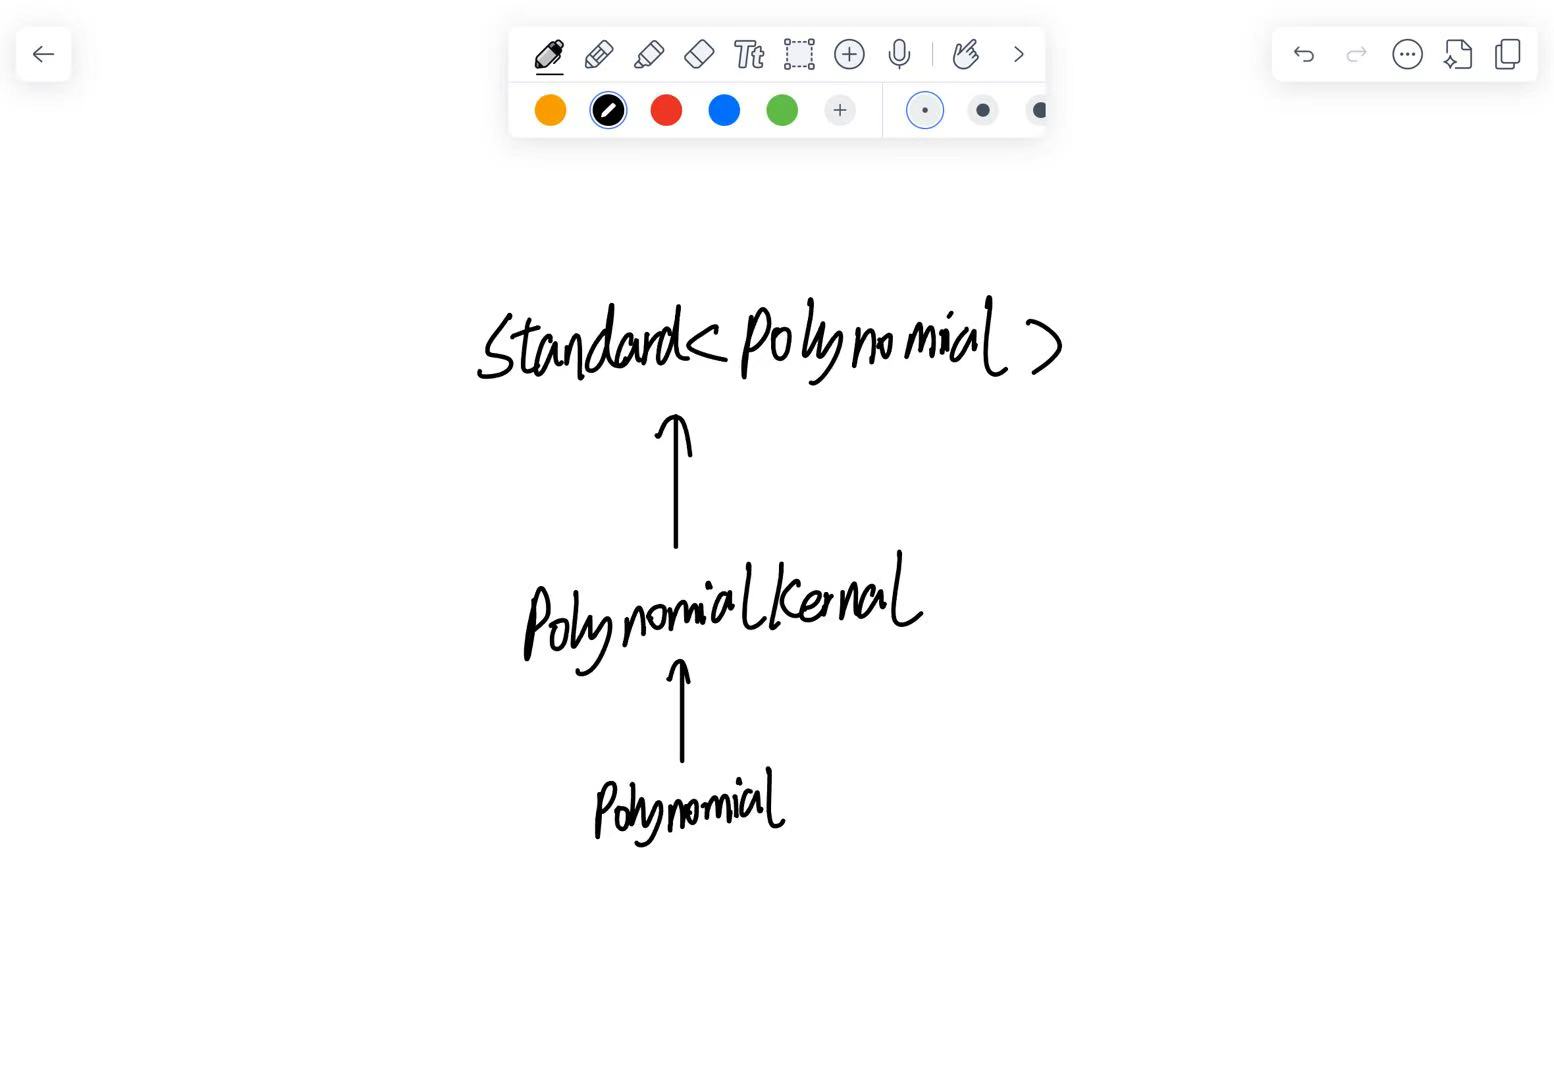 Tt
Standard<Polynomial>
PolynomialKernal
Polynomial